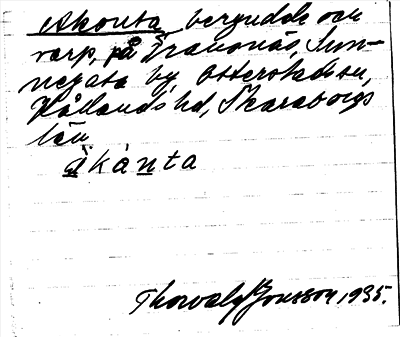 Akonta, bergudde och
varp, på Dranonäs, Sun-
negata by, Otterstads sn,
Kållands hd, Skaraborgs
län.
àkànta
Thorvald Jonsson 1935.